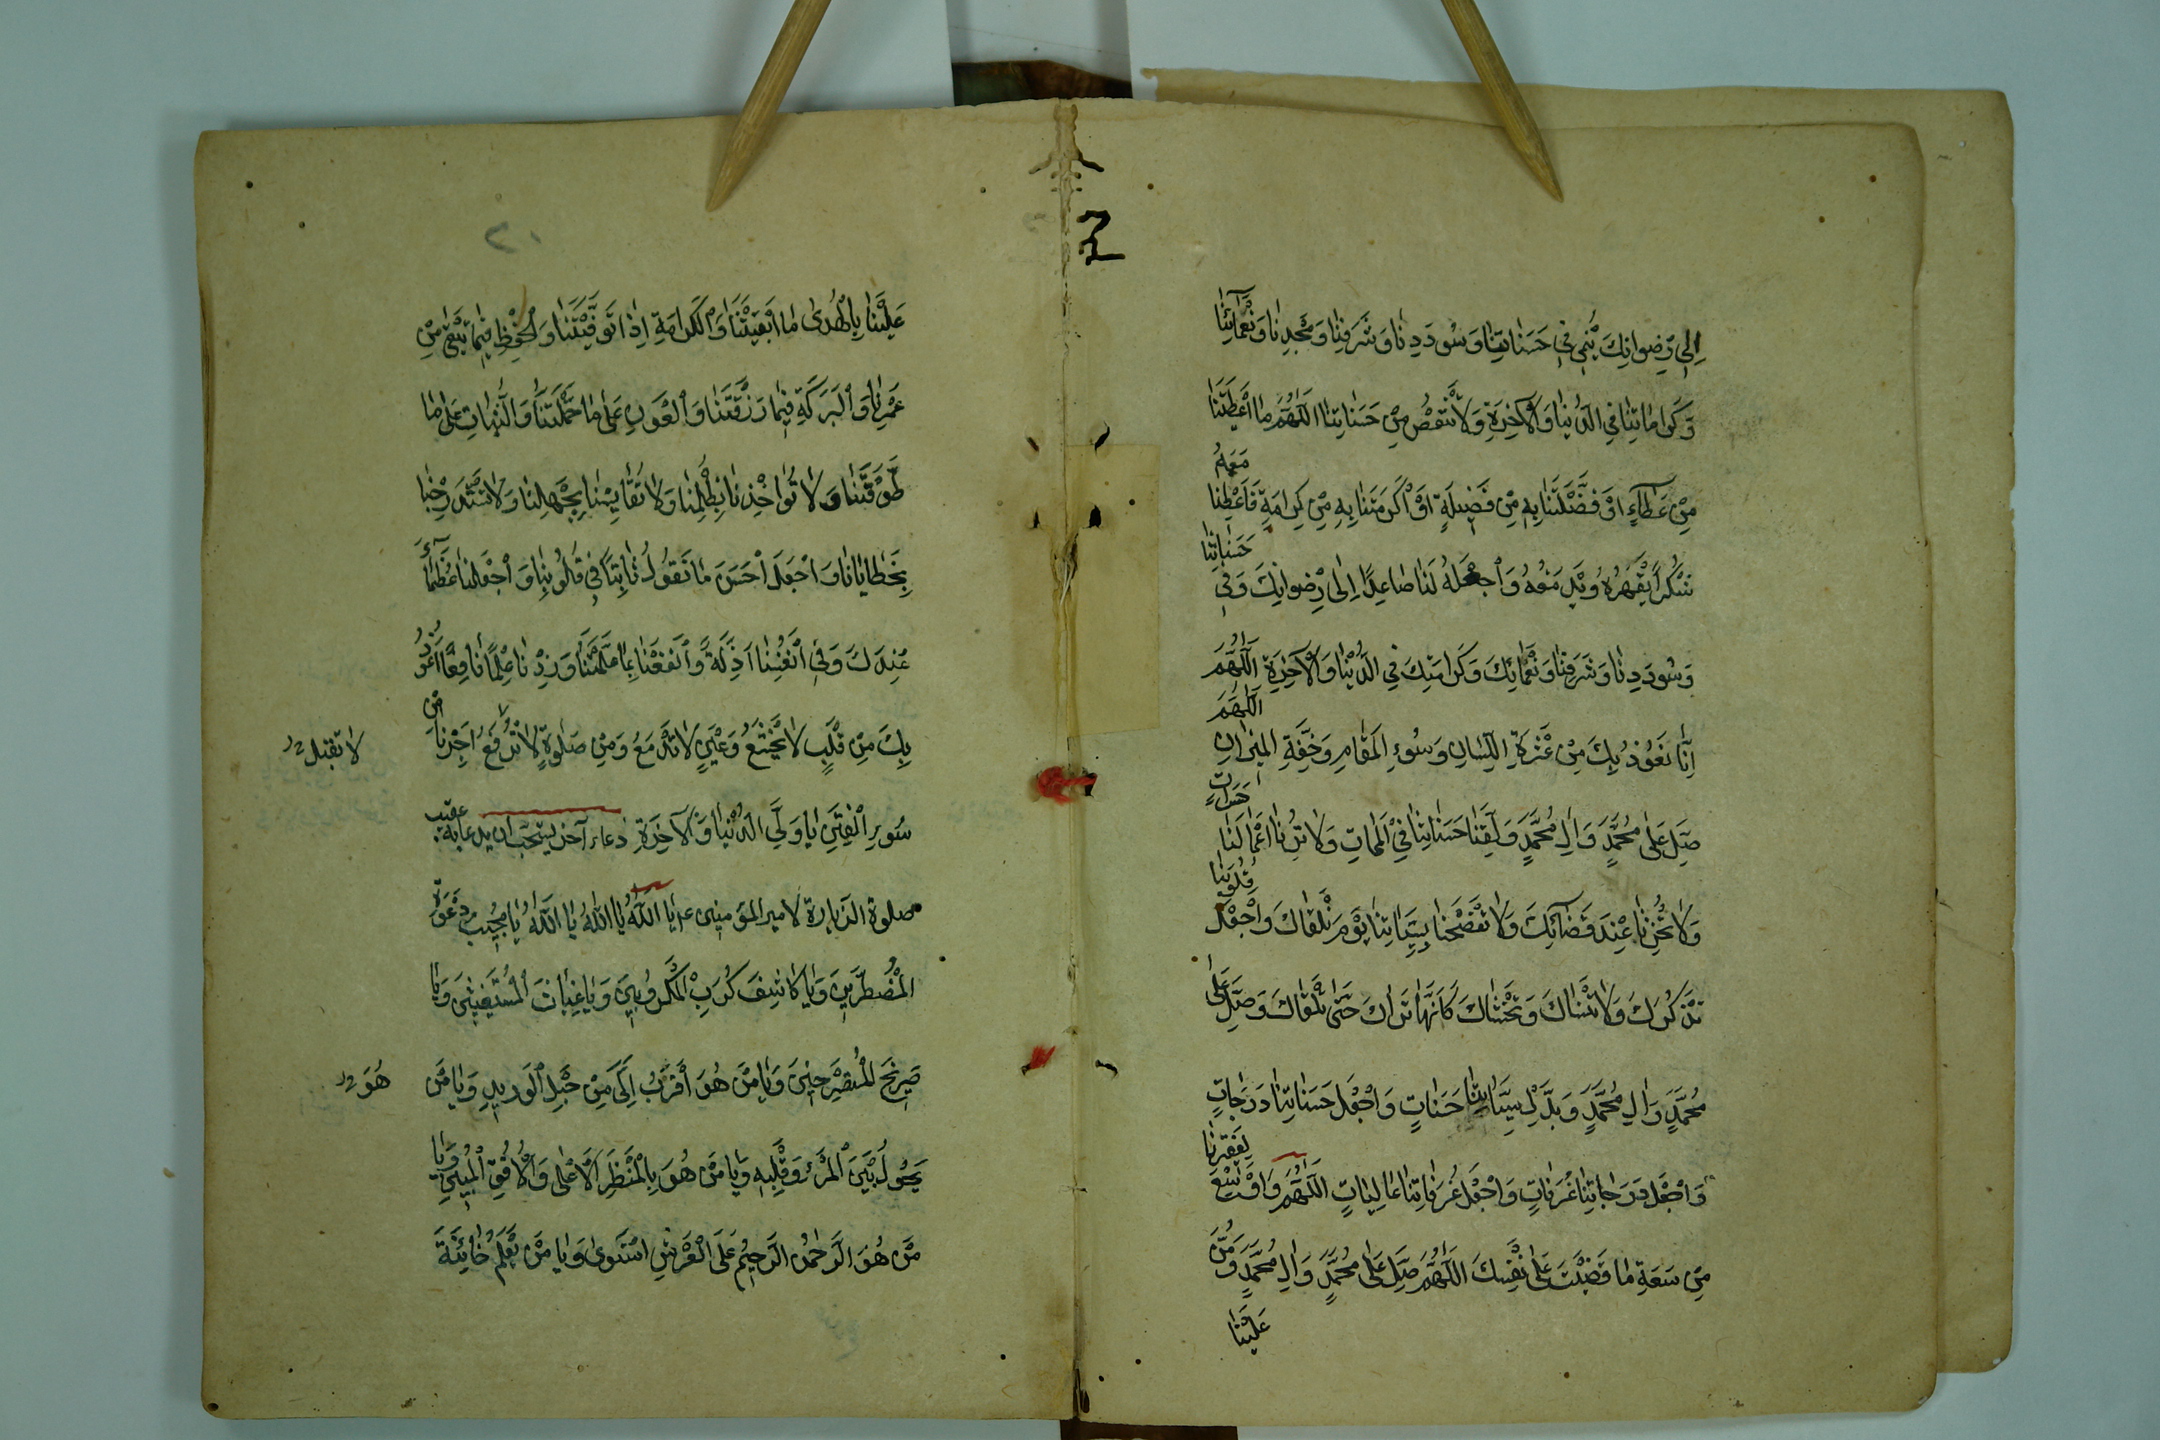 اِلٰى رِضْوانِكَ يُنْمى فى حَسَناتِنا وَسُودَدِنا وَشَرَفِنا وَمَجْدِنا وَنَعْمائِنا
وَكَراماتِنا فِى الدُّنْيا وَالْآخِرَةِ وَلا تَنْقُصْ مِنْ حَسَناتِنا اَللّٰهُمَّ ما اَعْطَيْتَنا
مِنْ عَطآءٍ اَوْ فَضَّلْتَنا بِهِ مِنْ فَضيلَةٍ اَوْ اَكْرَمْتَنا بِهِ مِنْ كِرامَةٍ فَاَعْطِنا مَعَهُ
شُكْرًا يَقْهَرُهُ وَيَدْمَغُهُ وَاجْعَلْهُ لَنا صاعِدًا اِلٰى رِضْوانِكَ وَفى حَسَناتِنا
وَسُودَدِنا وَشَرَفِنا وَنَعْمائِكَ وَكَرامَتِكَ فِى الدُّنْيا وَالْآخِرَةِ اَللّٰهُمَّ
اِنّا نَعُوذُ بِكَ مِنْ عَثْرَةِ اللِّسانِ وَسُوءِ الْمَقامِ وَخِفَّةِ الْميزانِ اَللّٰهُمَّ
صَلِّ عَلٰى مُحَمَّدٍ وَالِ مُحَمَّدٍ وَلَقِّنا حَسَناتِنا فِى الْمَماتِ وَلا تُرِنا اَعْمالَنا حَسَراتٍ
وَلا تُخْزِنا عِنْدَ قَضآئِكَ وَلا تَفْضَحْنا بِسَيِّئاتِنا يَوْمَ نَلْقاكَ وَاجْعَلْ قُلُوبَنا
تَذْكُرُكَ وَلا تَنْساكَ وَتَخْشاكَ كَاَنَّها تَراكَ حَتّٰى تَلْقاكَ وَصَلِّ عَلٰى
مُحَمَّدٍ وَالِ مُحَمَّدٍ وَبَدِّلْ سَيِّئاتِنا حَسَناتٍ وَاجْعَلْ حَسَناتِنا دَرَجاتٍ
وَاجْعَلْ دَرَجاتِنا غُرَفاتٍ وَاجْعَلْ غُرَفاتِنا عالِياتٍ اَللّٰهُمَّ وَاَوْسِعْ لِفَقْرِنا
مِنْ سَعَةِ ما قَضَيْتَ عَلٰى نَفْسِكَ اَللّٰهُمَّ صَلِّ عَلٰى مُحَمَّدٍ وَالِ مُحَمَّدٍ وَمُنَّ
عَلَيْنا
عَلَيْنا بِالْهُدٰى ما اَبْقَيْتَنا وَالْكَرامَةِ اِذا تَوَفَّيْتَنا وَالْحِفْظِ فيما بَقِىَ مِنْ
عُمْرِنا وَالْبَرَكَةِ فيما رَزَقْتَنا وَالْعَوْنِ عَلٰى ما حَمَّلْتَنا وَالثَّباتِ عَلٰى ما
طَوَّقْتَنا وَلا تُؤاخِذْنا بِظُلْمِنا وَلا تُقايِسْنا بِجَهْلِنا وَلا تَسْتَدْرِجْنا
بِخَطايانا وَاجْعَلْ اَحْسَنَ ما نَقُولُ ثابِتًا فى قُلُوبِنا وَاجْعَلْنا عُظَمآءَ
عِنْدَكَ وَفى اَنْفُسِنا اَذِلَّةً وَانْفَعْنا بِما عَلَّمْتَنا وَزِدْنا عِلْمًا نافِعًا اَعُوذُ
بِكَ مِنْ قَلْبٍ لا يَخْشَعُ وَعَيْنٍ لا تَدْمَعُ وَمِنْ صَلٰوةٍ لا تُرْفَعُ اَجِرْنا مِنْ
لا تقبل
سُوءِ الْفِتَنِ يا وَلِىَّ الدُّنْيا وَالْآخِرَةِ دعاء آخر يستحب ان يدعا به عقيب
صلوة الزيارة لامير المؤمنين ع يا اَللّٰهُ يا اَللّٰهُ يا اَللّٰهُ يا مُجيبَ دَعْوَةِ
الْمُضْطَرّينَ وَيا كاشِفَ كُرَبِ الْمَكْرُوبينَ وَيا غِياثَ الْمُسْتَغيثينَ وَيا
صَريخَ الْمُسْتَصْرِخينَ وَيا مَنْ هُوَ اَقْرَبُ اِلَىَّ مِنْ حَبْلِ الْوَريدِ وَيا مَنْ
هُوَ
يَحُولُ بَيْنَ الْمَرْءِ وَقَلْبِهِ وَيا مَنْ هُوَ بِالْمَنْظَرِ الْاَعْلٰى وَالْاُفُقِ الْمُبينِ وَيا
مَنْ هُوَ الرَّحْمٰنُ الرَّحيمُ عَلَى الْعَرْشِ اسْتَوٰى وَيا مَنْ يَعْلَمُ خائِنَةَ